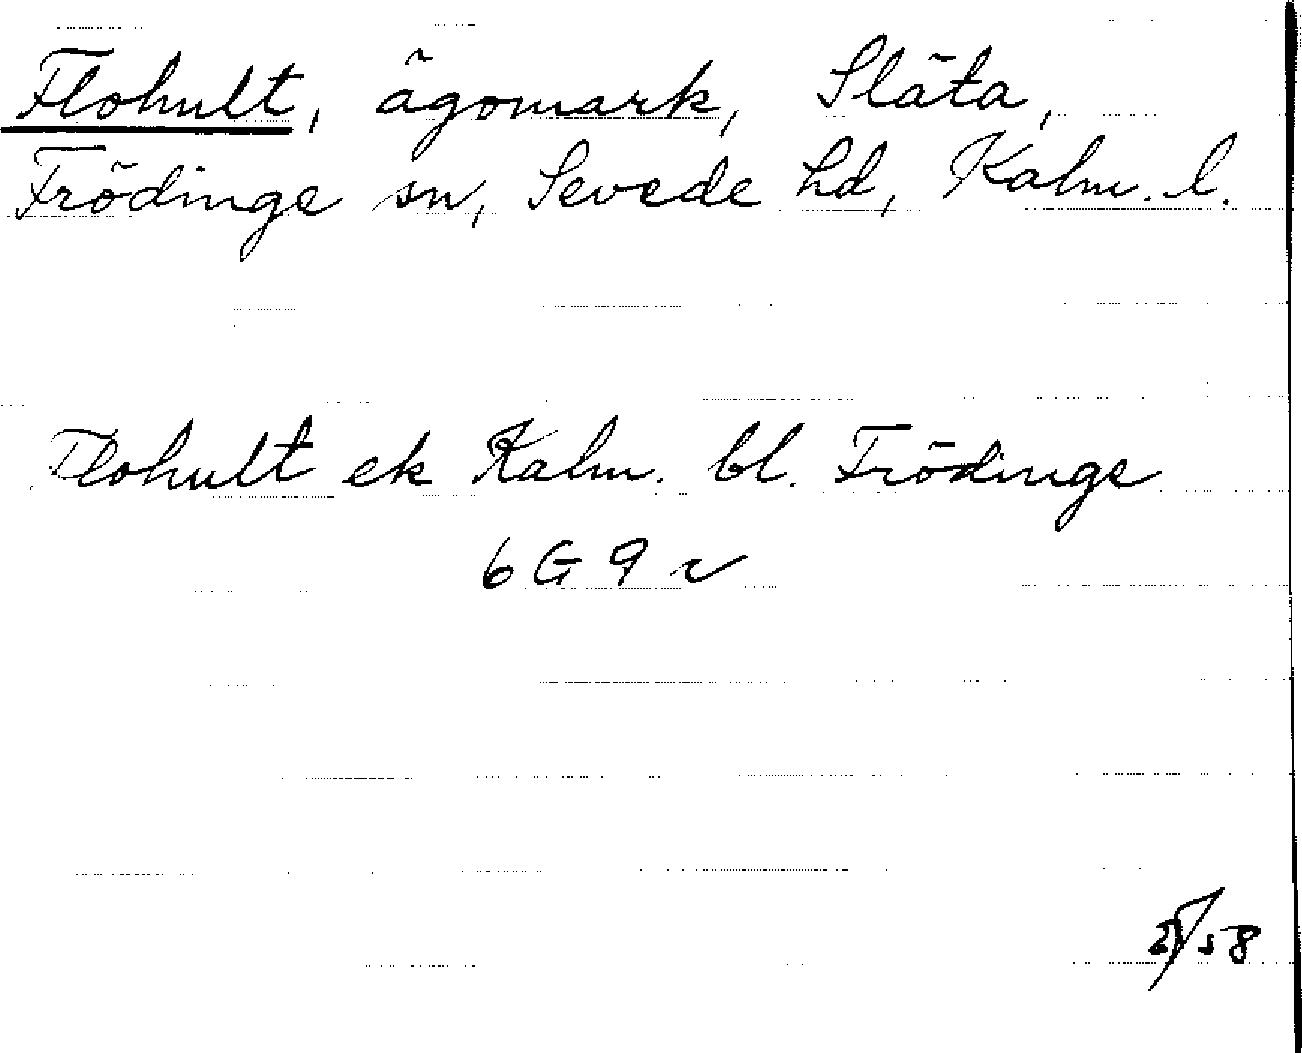 Flohult, ägomark, Släta,
Frödinge sn, Sevede hd, Kalm. l.
Flohult ek Kalm. bl. Frödinge
6 G 9 v
58